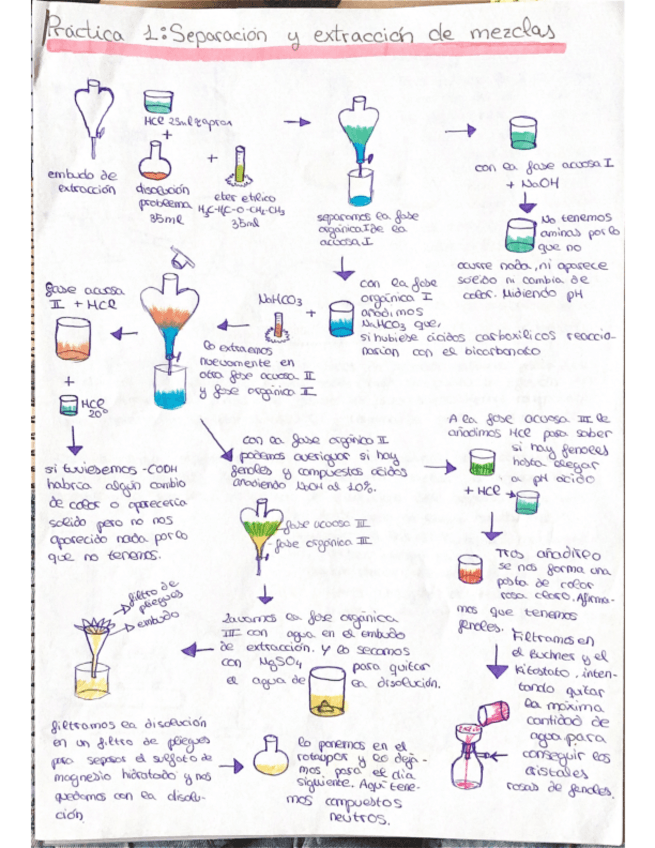 Práctica 1: Separación y extracción de mezclas
embudo de
extracción
HCl 25ml aprox
+
disolución
problema
35ml
+
eter etílico
H3C-H2C-O-CH2-CH3
35ml
separamos la fase
orgánica I de la
acuosa I
con la fase acuosa I
+ NaOH
No tenemos
aminas por lo
que no
ocurre nada, ni aparece
solido ni cambia de
color. Midiendo pH
con la fase
orgánica I
añadimos
NaHCO3 que,
si hubiese ácidos carboxílicos reaccio-
narían con el bicarbonato
+
NaHCO3
lo extraemos
nuevamente en
otra fase acuosa II
y fase orgánica II
fase acuosa
II + HCl
+
HCl
20%
si tuviesemos -COOH
habría algún cambio
de color o aparecería
solido pero no nos
aparecido nada por lo
que no tenemos.
con la fase orgánica II
podemos averiguar si hay
fenoles y compuestos ácidos
añadiendo NaOH al 10%.
fase acuosa III
fase orgánica III
A la fase acuosa III le
añadimos HCl para saber
si hay fenoles
hasta llegar
a pH ácido
+ HCl
Tras añadirlo
se nos forma una
pasta de color
rosa claro. Afirma-
mos que tenemos
fenoles.
Filtramos en
el Buchner y el
Kitasato, inten-
tando quitar
la máxima
cantidad de
agua para
conseguir los
cristales
rosas de fenoles.
Lavamos la fase orgánica
III con agua en el embudo
de extracción. Y lo secamos
con MgSO4 para quitar
el agua de la disolución.
filtro de
pliegues
embudo
filtramos la disolución
en un filtro de pliegues
para separar el sulfato de
magnesio hidratado y nos
quedamos con la disolu-
ción
lo ponemos en el
rotavapor y lo deja-
mos para el día
siguiente. Aquí tene-
mos compuestos
neutros.